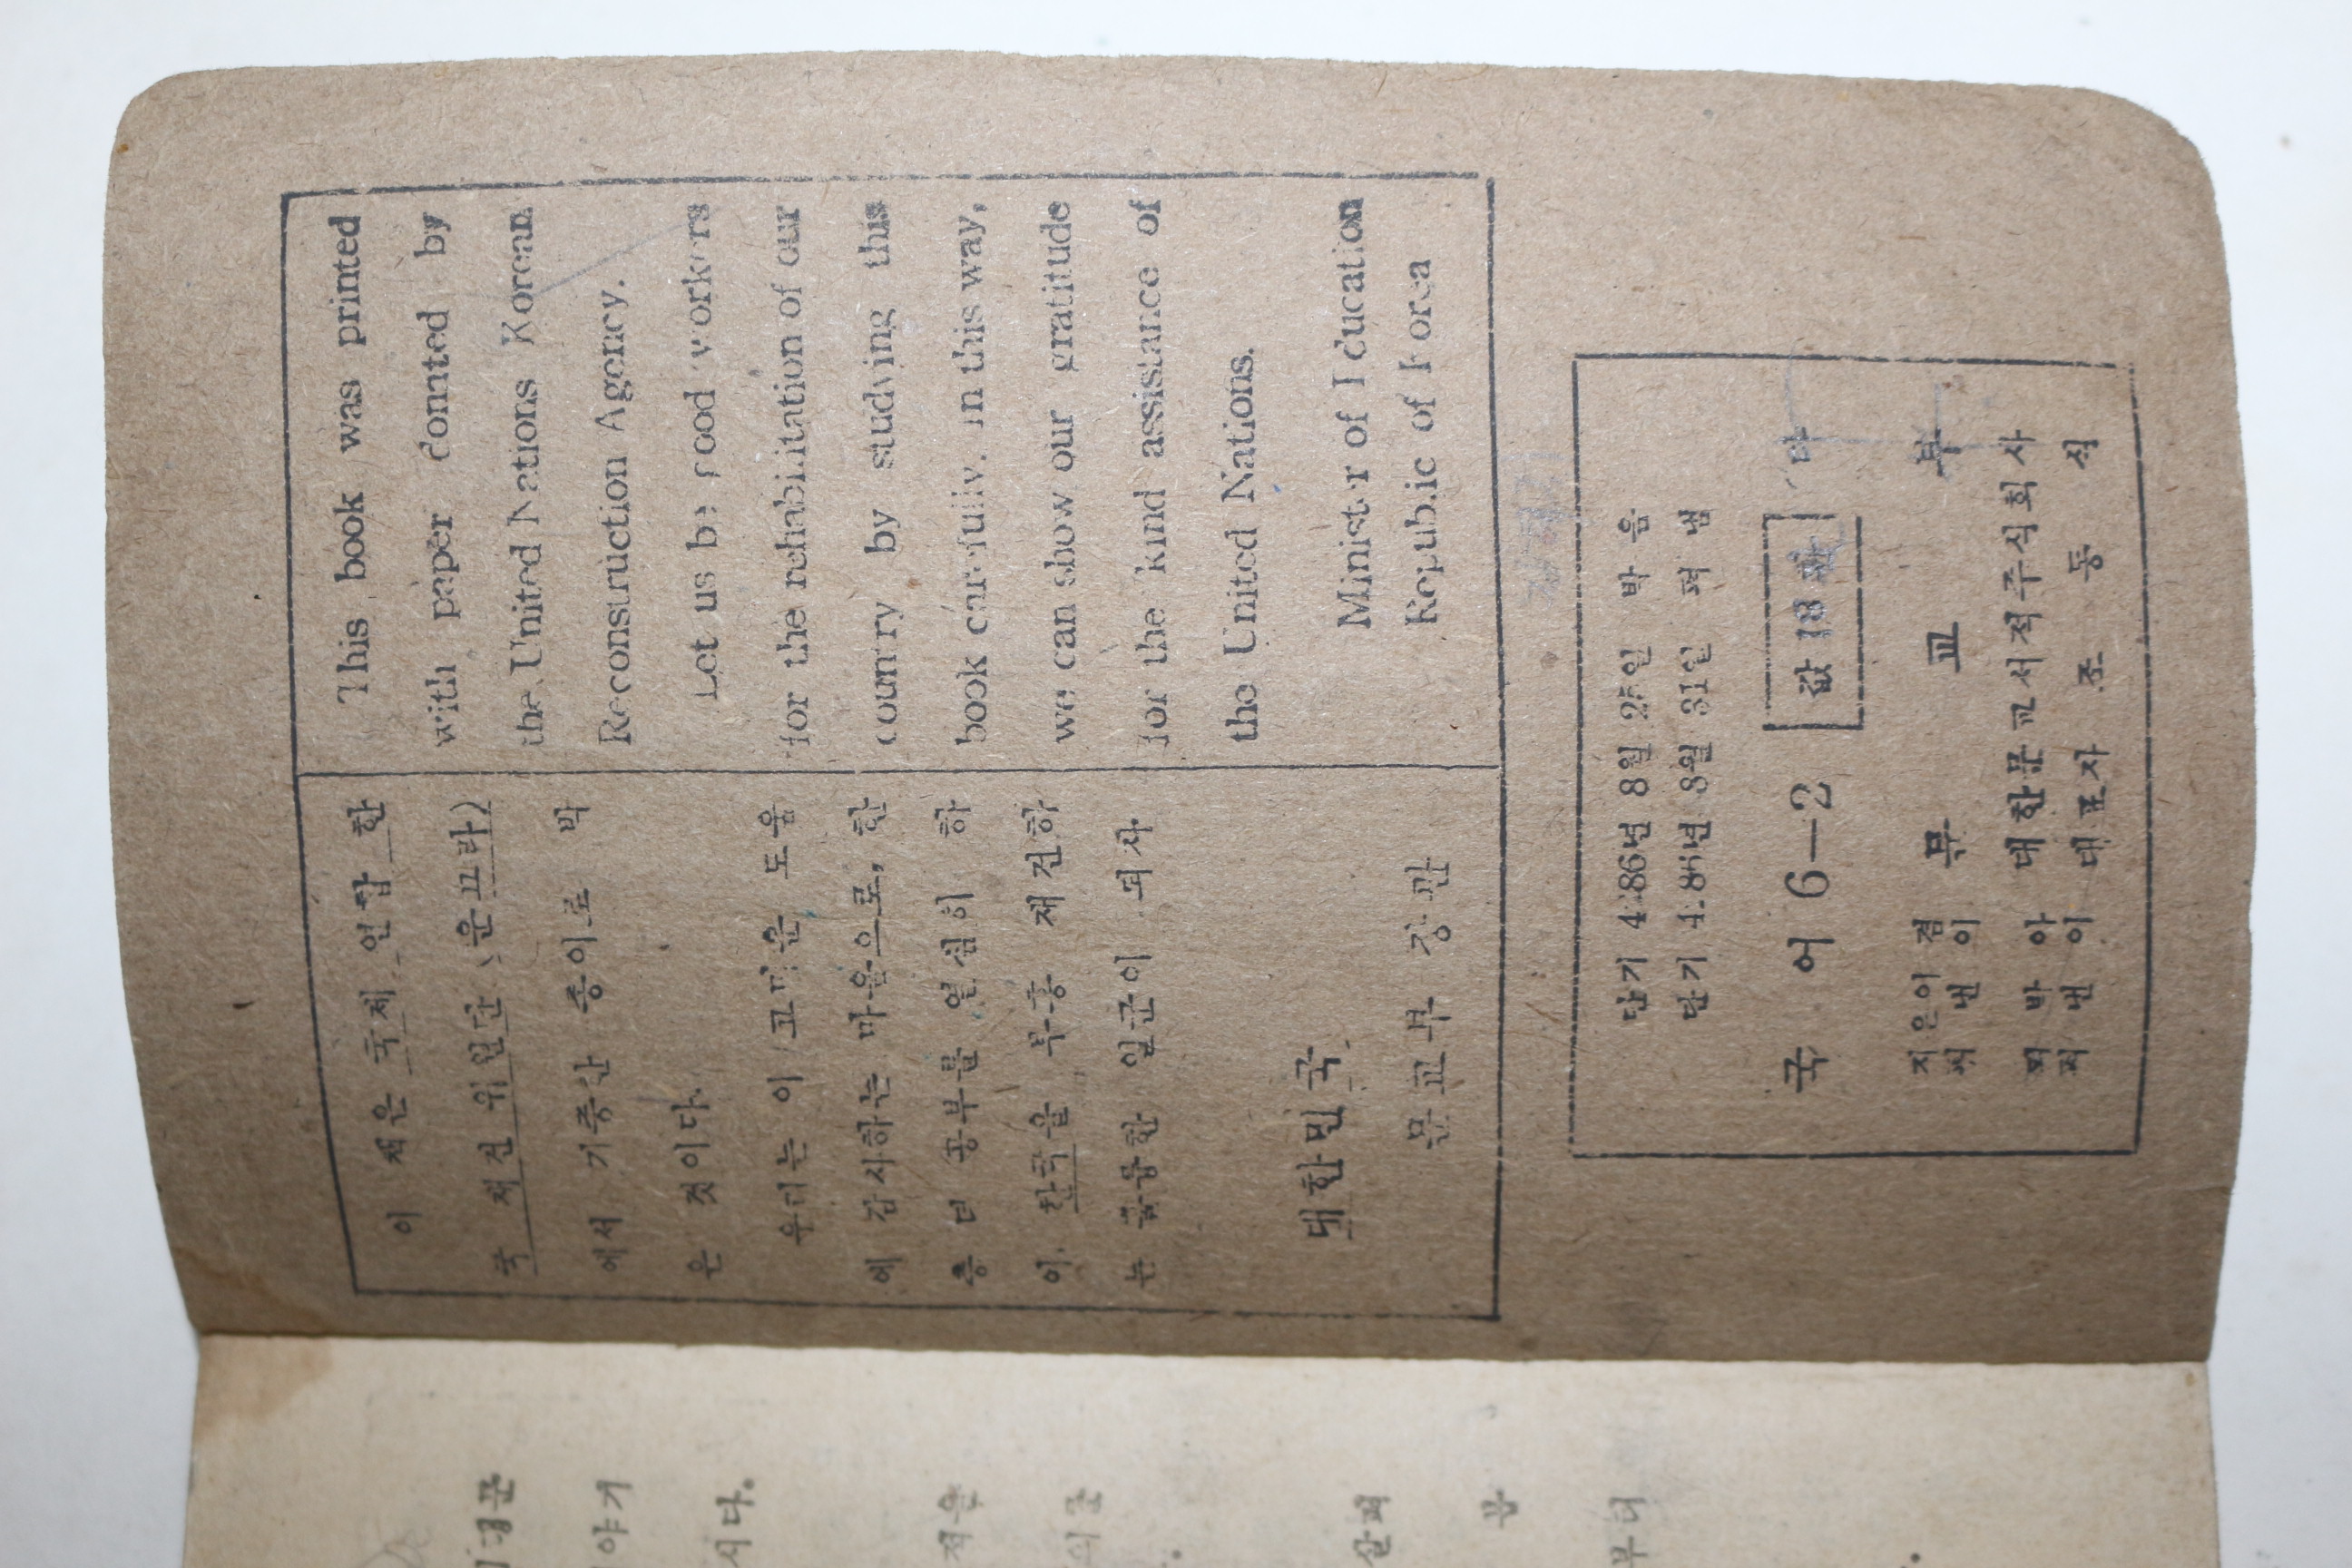 이 책은 국제 연합 한
국 재건 위원단 (운끄라)
에서 기증한 종이로 박
은 것이다.
우리는 이 고마운 도움
에 감사하는 마음으로, 한
층 더 공부를 열심히 하
여 한국을 부흥 재건하
는 훌륭한 일군이 되자
대한민국
문교부 장관
This book was printed
with paper donated by
the United Nations Korean
Reconstruction Agency.
Let us be good workers
for the rehabilitation of our
country by studying this
book carefully. In this way,
we can show our gratitude
for the kind assistance of
the United Nations.
Minister of Education
Republic of Korea
단기 4286년 8월 25일 박음
단기 4286년 8월 31일 펴냄
국 어 6—2
값 18 환
지은이 겸
펴 낸 이
문 교 부
박아
펴 낸 이
대한문교서적주식회사
대표자 조 동 식
야기
시다.
적은
살펴
부터